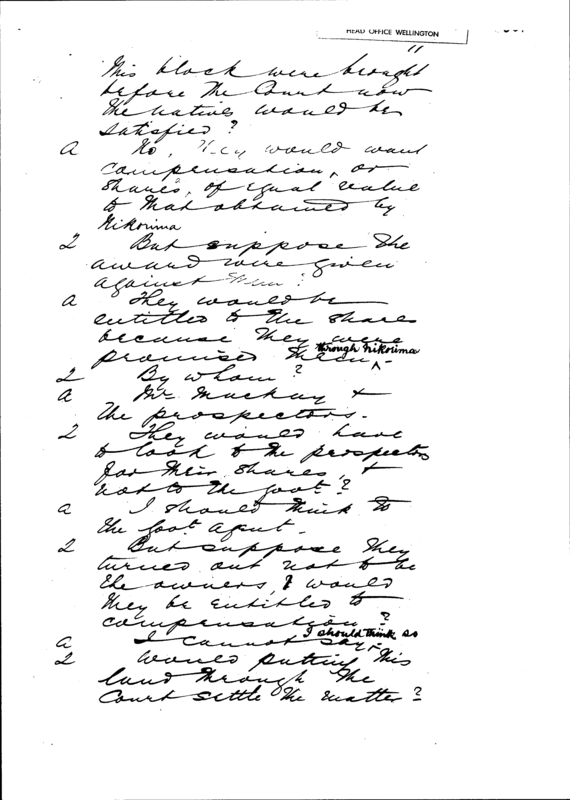 HEAD OFFICE WELLINGTON
11
this block were brought
before the Court now
the natives would be
satisfied?
A No, they would want
compensation, or
shares, of equal value
to that obtained by
Nikorima
Q But suppose the
award were given
against them?
A They would be
entitled to the shares
because they were
through Nikorima
promised them ^ -
Q By whom?
A Mr. Mackay +
the prospectors.
Q They would have
to look to the prospectors
for their shares, +
not to the govt?
A I should think to
the govt agent.
Q But suppose they
turned out not to be
the owners, would
they be entitled to
compensation?
I should think so
A I cannot say, ^
Q Would putting this
land through the
Court settle the matter?